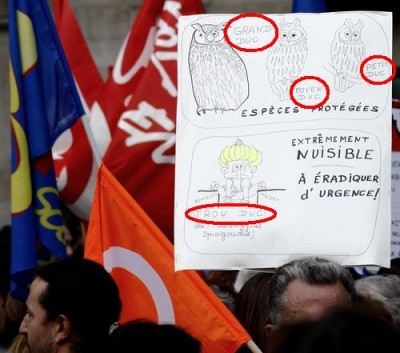 GRAND
DUC
MOYEN
DUC
PETIT
DUC
ESPÈCES PROTÉGÉES
EXTRÊMEMENT
NUISIBLE
À ÉRADIQUER
d'URGENCE!
TROU DUC
Ignogoudus